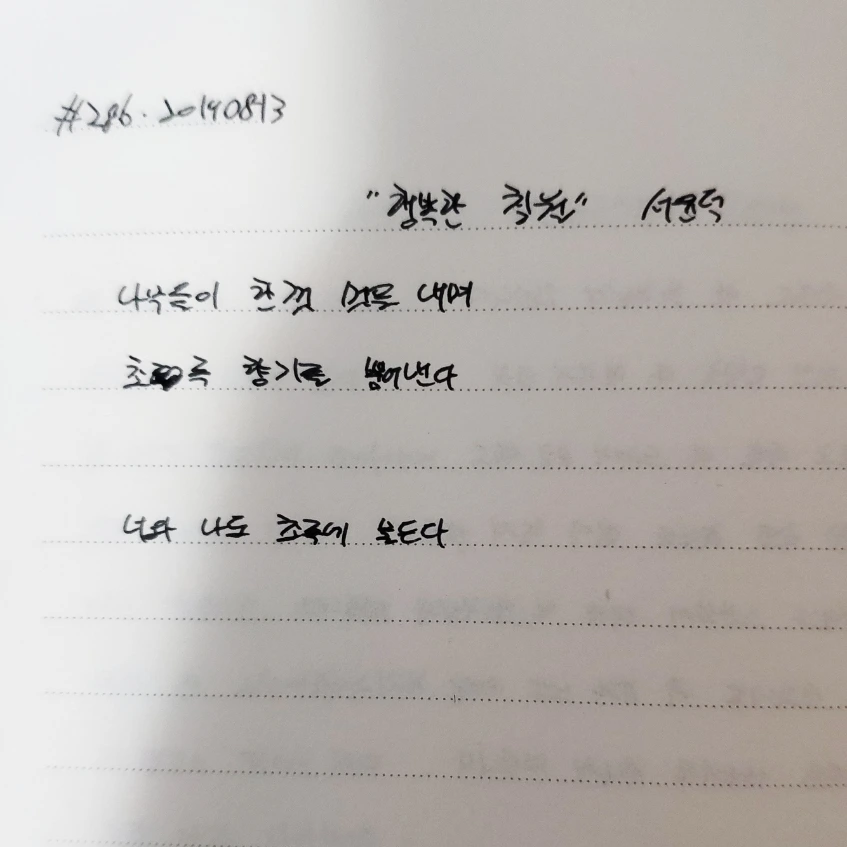 #286. 20190813
"행복한 칰원" 서윤덕
나무들이 한껏 멋을 내며
초록 향기를 뿜어낸다
너와 나도 초록에 물든다